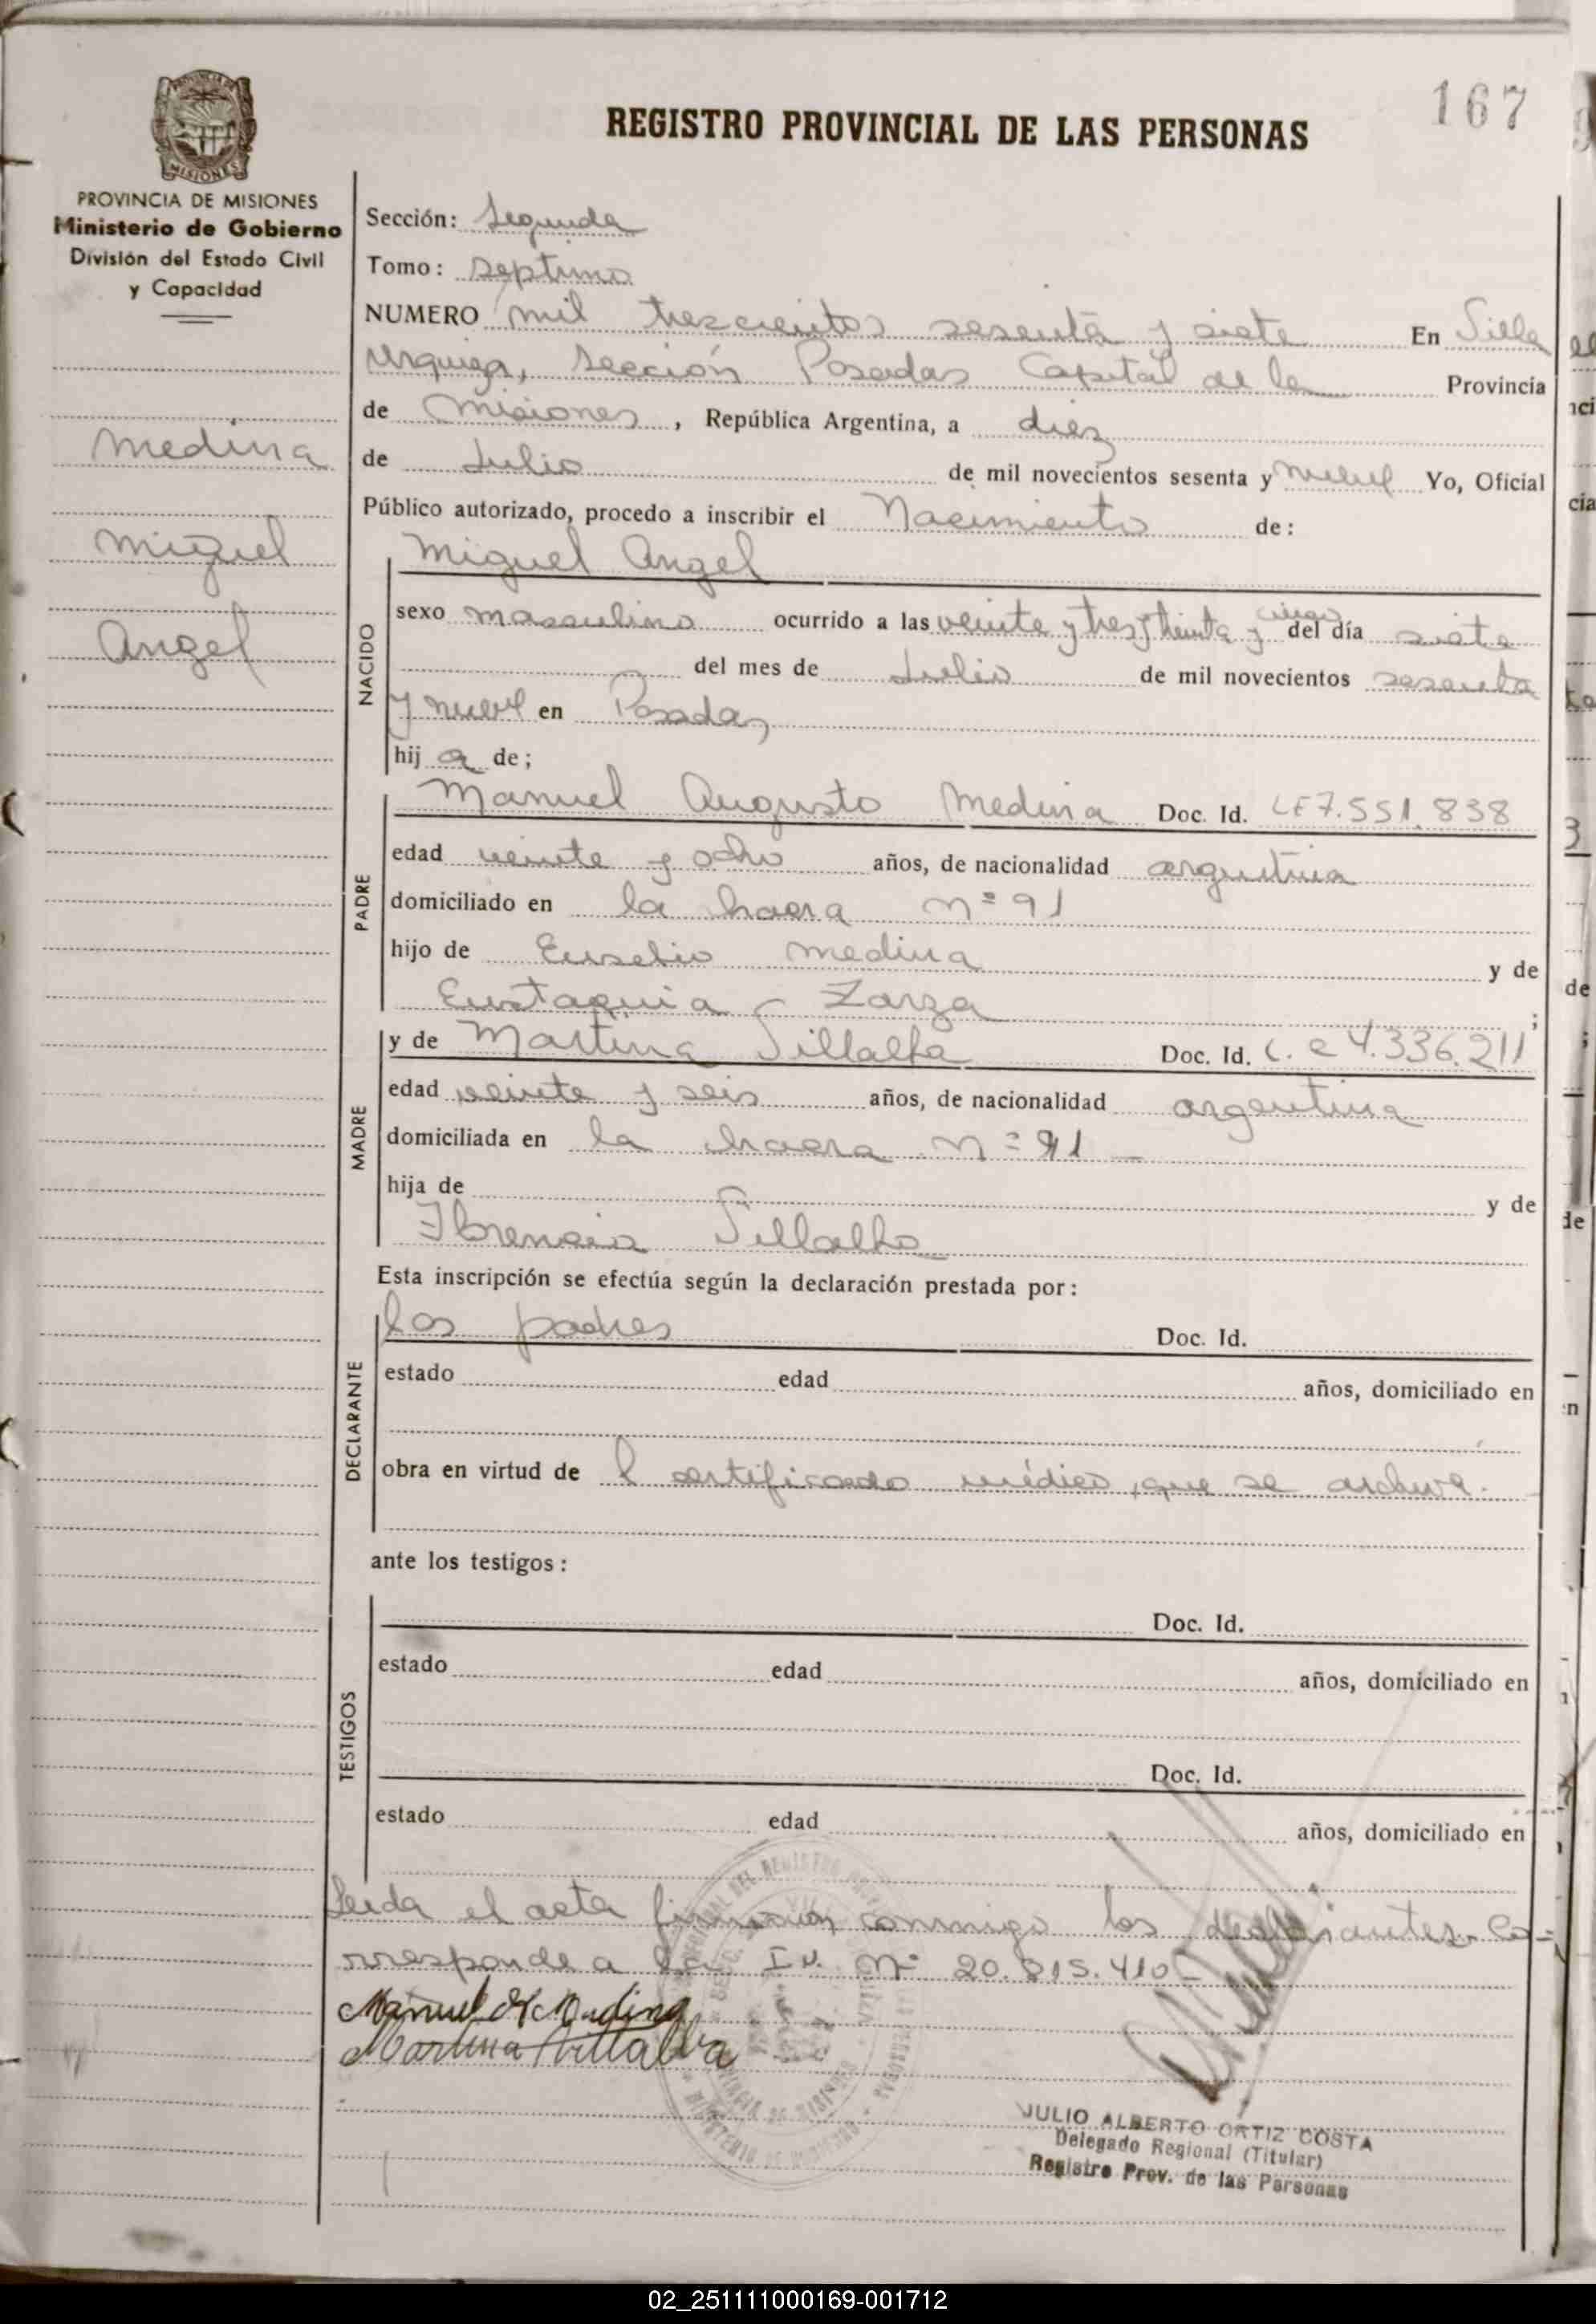 167
REGISTRO PROVINCIAL DE LAS PERSONAS
PROVINCIA DE MISIONES
Ministerio de Gobierno
División del Estado Civil
y Capacidad
Medina
Miguel
Angel
Sección: Segunda
Tomo: Septimo
NUMERO mil trescientos sesenta y siete En Villa
Urquiza, Sección Posadas Capital de la Provincia
de Misiones, República Argentina, a diez
de Julio de mil novecientos sesenta y nueve Yo, Oficial
Público autorizado, procedo a inscribir el Nacimiento de:
NACIDO
Miguel Angel
sexo masculino ocurrido a las veinte y tres y treinta y cinco del día siete
del mes de Julio de mil novecientos sesenta
y nueve en Posadas
hij o de;
PADRE
Manuel Augusto Medina Doc. Id. LE 7.551.838
edad veinte y ocho años, de nacionalidad argentina
domiciliado en la chacra nº 91
hijo de Eusebio Medina y de
Eustaquia Zarza ;
MADRE
y de Martina Villalba Doc. Id. C. 4.336.211
edad veinte y seis años, de nacionalidad argentina
domiciliada en la chacra nº 91
hija de y de
Florencia Villalba
Esta inscripción se efectúa según la declaración prestada por:
DECLARANTE
los padres Doc. Id.
estado edad años, domiciliado en
obra en virtud de l certificado médico, que se archiva.
ante los testigos:
TESTIGOS
Doc. Id.
estado edad años, domiciliado en
Doc. Id.
estado edad años, domiciliado en
Leida el acta firman conmigo los declarantes. Co-
rresponde a la I.N. Nº 20.815.410
Manuel A Medina
Martina Villalba
JULIO ALBERTO ORTIZ COSTA
Delegado Regional (Titular)
Registro Prov. de las Personas
02_251111000169-001712